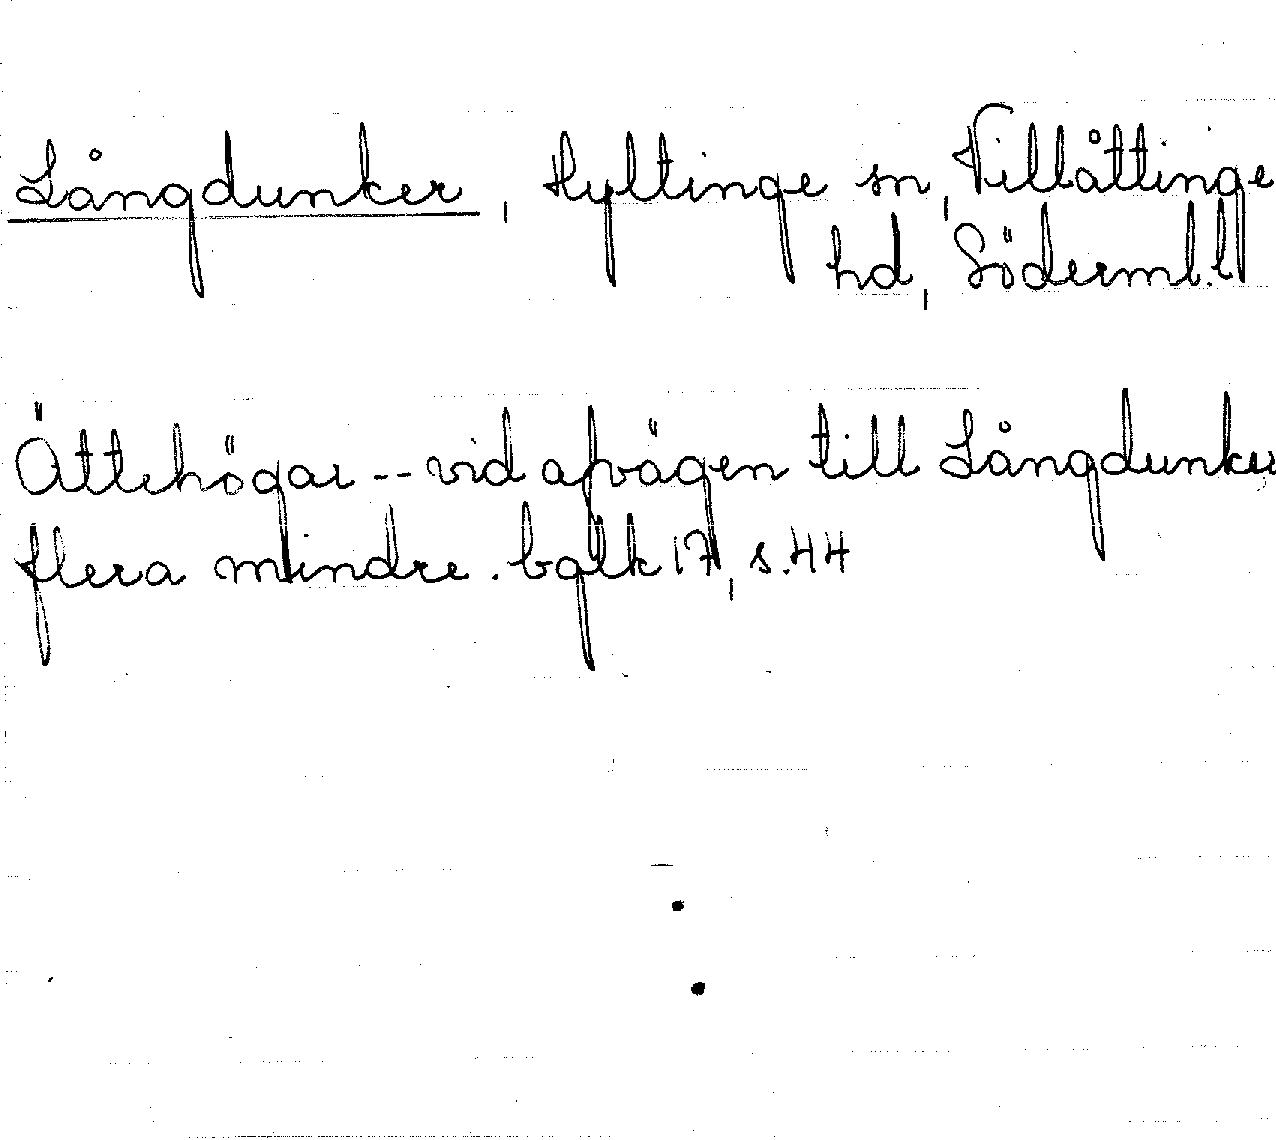 Långdunker, Hyltinge sn, Villåttinge
hd, Söderml.l
Ättehögar -- vid afvägen till Långdunker
flera mindre. balk 17, s. 44